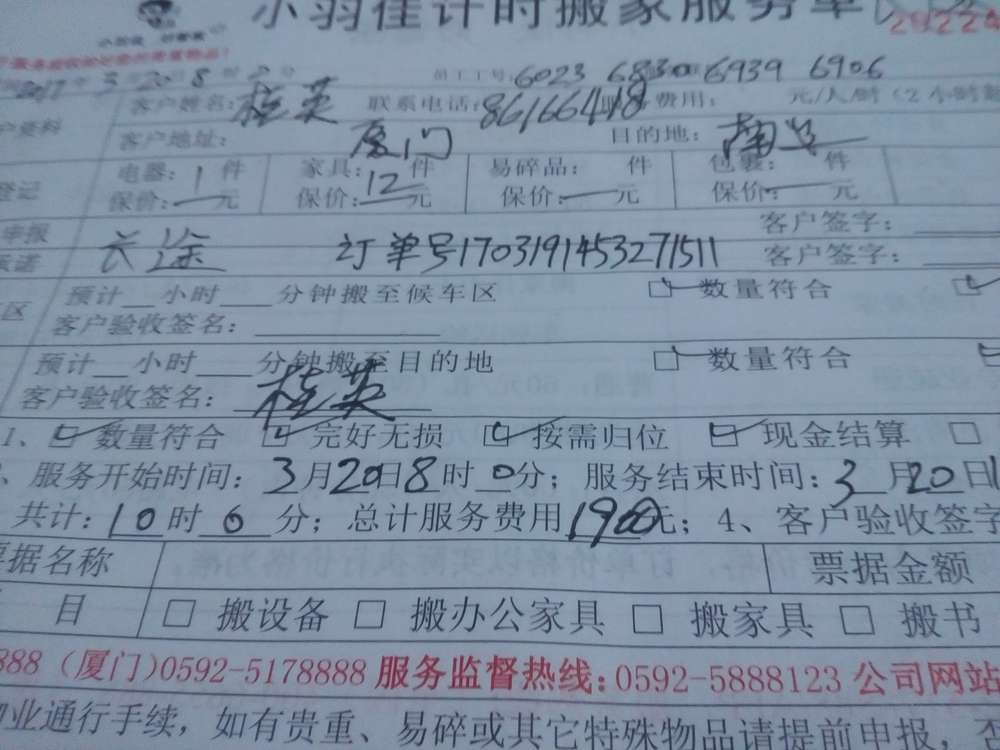 小羽佳计时搬家服务单
29224
2017 3 20 8 分 员工工号:6023 6830 6939 6906
客户姓名:桂英 联系电话:86166418 费用: 元/人/时(2小时
户资料 客户地址: 厦门 目的地:南昌
电器:1件 家具: 件 易碎品: 件 包裹: 件
登记 保价:一元 保价:12元 保价:一元 保价:一元
申报 客户签字:
承诺 长途 订单号1703191453271511 客户签字:
区 预计__小时___分钟搬至候车区 ☑数量符合 ☑
客户验收签名:
预计__小时___分钟搬至目的地 ☑数量符合
客户验收签名: 桂英
1、☑数量符合 ☑完好无损 ☑按需归位 ☑现金结算 □
、服务开始时间:3月20日8时0分;服务结束时间:3月20日1
共计:10时0分;总计服务费用1900元;4、客户验收签字
票据名称 票据金额
目 □搬设备 □搬办公家具 □搬家具 □搬书
888(厦门)0592-5178888服务监督热线:0592-5888123公司网站
物业通行手续,如有贵重、易碎或其它特殊物品请提前申报,否